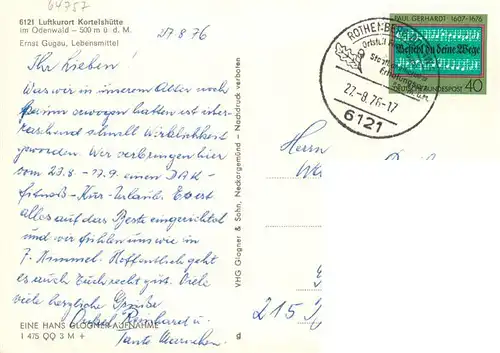 64757
6121 Luftkurort Kortelshütte
im Odenwald – 500 m ü. d. M.
Ernst Gugau, Lebensmittel
27/8 76
Ihr Lieben!
Was wir in unserem Alter noch
erwogen hatten ist über-
raschend schnell Wirklichkeit
geworden. Wir verbringen hier
vom 23.8 - 17.9. einen DAK-
Fitneß-Kur-Urlaub. Es ist
alles auf das Beste eingerichtet
und wir fühlen uns wie in
7. Himmel. Hoffentlich geht
es auch Euch recht gut. Viele
viele herzliche Grüße
Onkel u.
Tante
EINE HANS GLOGNER-AUFNAHME
I 475 QQ 3 M +
g
VHG Glogner & Sohn, Neckargemünd – Nachdruck verboten
ROTHENBERG
22.-8.76-17
6121
PAUL GERHARDT · 1607-1676
Befiehl du deine Wege
DEUTSCHE BUNDESPOST 40
Herrn
215